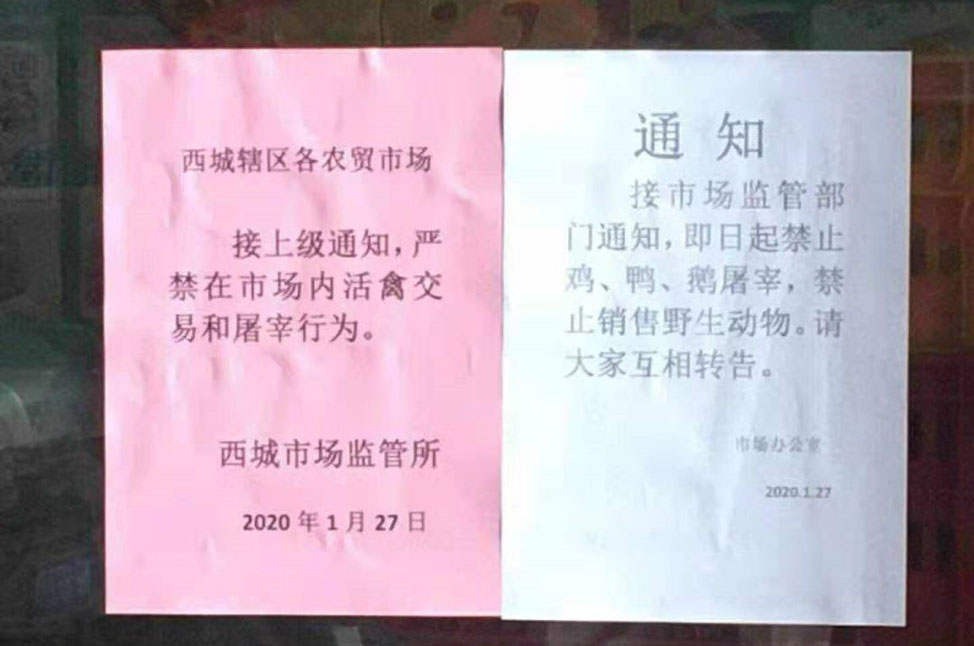 西城辖区各农贸市场
接上级通知，严
禁在市场内活禽交
易和屠宰行为。
西城市场监管所
2020 年 1 月 27 日
通 知
接市场监管部
门通知，即日起禁止
鸡、鸭、鹅屠宰，禁
止销售野生动物。请
大家互相转告。
市场办公室
2020.1.27